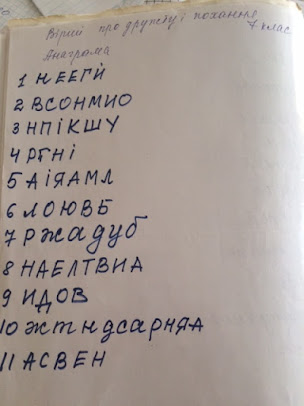 Вірші про дружбу і кохання
7 клас
Анаграма
1 НЕЕГЙ
2 ВСОНМИО
3 НПІКШУ
4 РГНІ
5 АІЯАМЛ
6 ЛОЮВБ
7 РжадуБ
8 НАЕЛТВИА
9 ИДОВ
10 жтндсарняа
11 АСВЕН